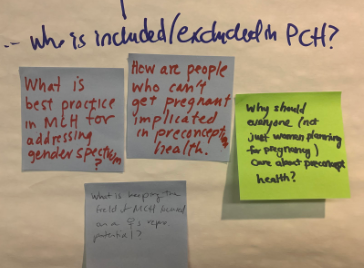 -- Who is included/excluded in PCH?
What is
best practice
in MCH for
addressing
gender spectrum
?
How are people
who can't
get pregnant
implicated
in preconcept
health.
Why should
everyone (not
just women planning
for pregnancy)
care about preconcept
health?
What is keeping the
field of MCH focused
on a ♀'s repro
potential?